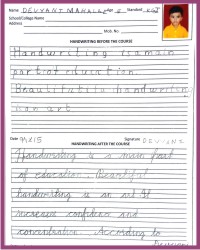 Name DEVYANT MAHALLE Age Standard KG2
School/College Name
Address
Mob. No
HANDWRITING BEFORE THE COURSE
Handwriting is a main
part of education.
Beautiful handwriting
is an art
Date Signature DEVYANT
HANDWRITING AFTER THE COURSE
Handwriting is a main part
of education. Beautiful
handwriting is an art. It
increases confidence and
concentration. According to